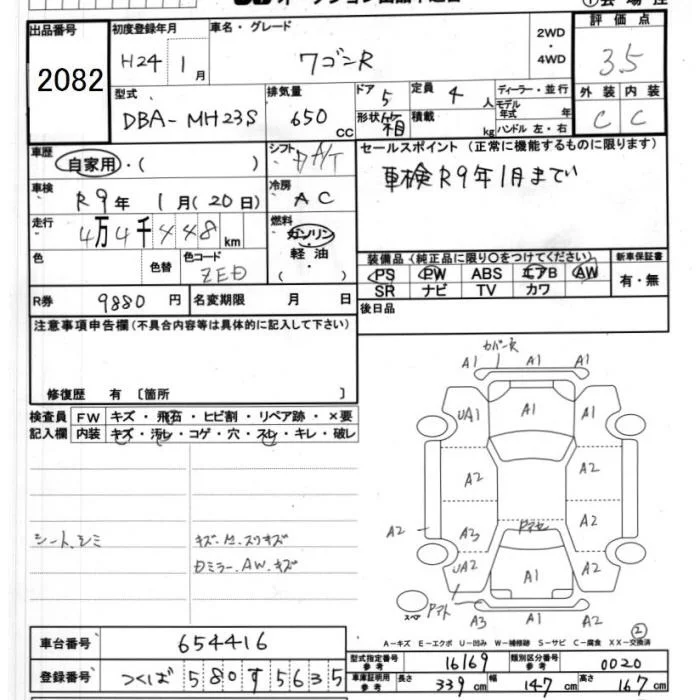 出品番号 2082
初度登録年月 H24 1月
車名・グレード ワゴンR
2WD・4WD
評価点 3.5
外装 C 内装 C
型式 DBA-MH23S
排気量 650 cc
ドア 5 形状 箱
定員 4人 積載 kg
ディーラー・並行
モデル年式 年
ハンドル 左・右
車歴 自家用・( )
シフト AT
セールスポイント (正常に機能するものに限ります)
車検R9年1月まで
車検 R9年 1月(20日)
冷房 AC
走行 4万4千448km
燃料 ガソリン・軽油・( )
色 色替 色コード ZED
装備品(純正品に限り○をつけてください) 新車保証書
PS PW ABS エアB AW 有・無
SR ナビ TV カワ
R券 9880円 名変期限 月 日
後日品
注意事項申告欄(不具合内容等は具体的に記入して下さい)
修復歴 有〔箇所 〕
検査員記入欄 FW キズ・飛石・ヒビ割・リペア跡・×要
内装 キズ・汚レ・コゲ・穴・スレ・キレ・破レ
シート、シミ
キズ・M・スリキズ
Dミラー、AW、キズ
カバー欠
A1 A1 A1
UA1 A1 A1
A2 A2
A2 A3 A2
UA2 A1 A2
スペア
A3 A1 A2
②
A-キズ E-エクボ U-凹み W-補修跡 S-サビ C-腐食 XX-交換済
車台番号 654416
型式指定番号 参考 16169 類別区分番号 参考 0020
登録番号 つくば 580 す 5635
車庫証明用 参考 長さ 339cm 幅 147cm 高さ 167cm